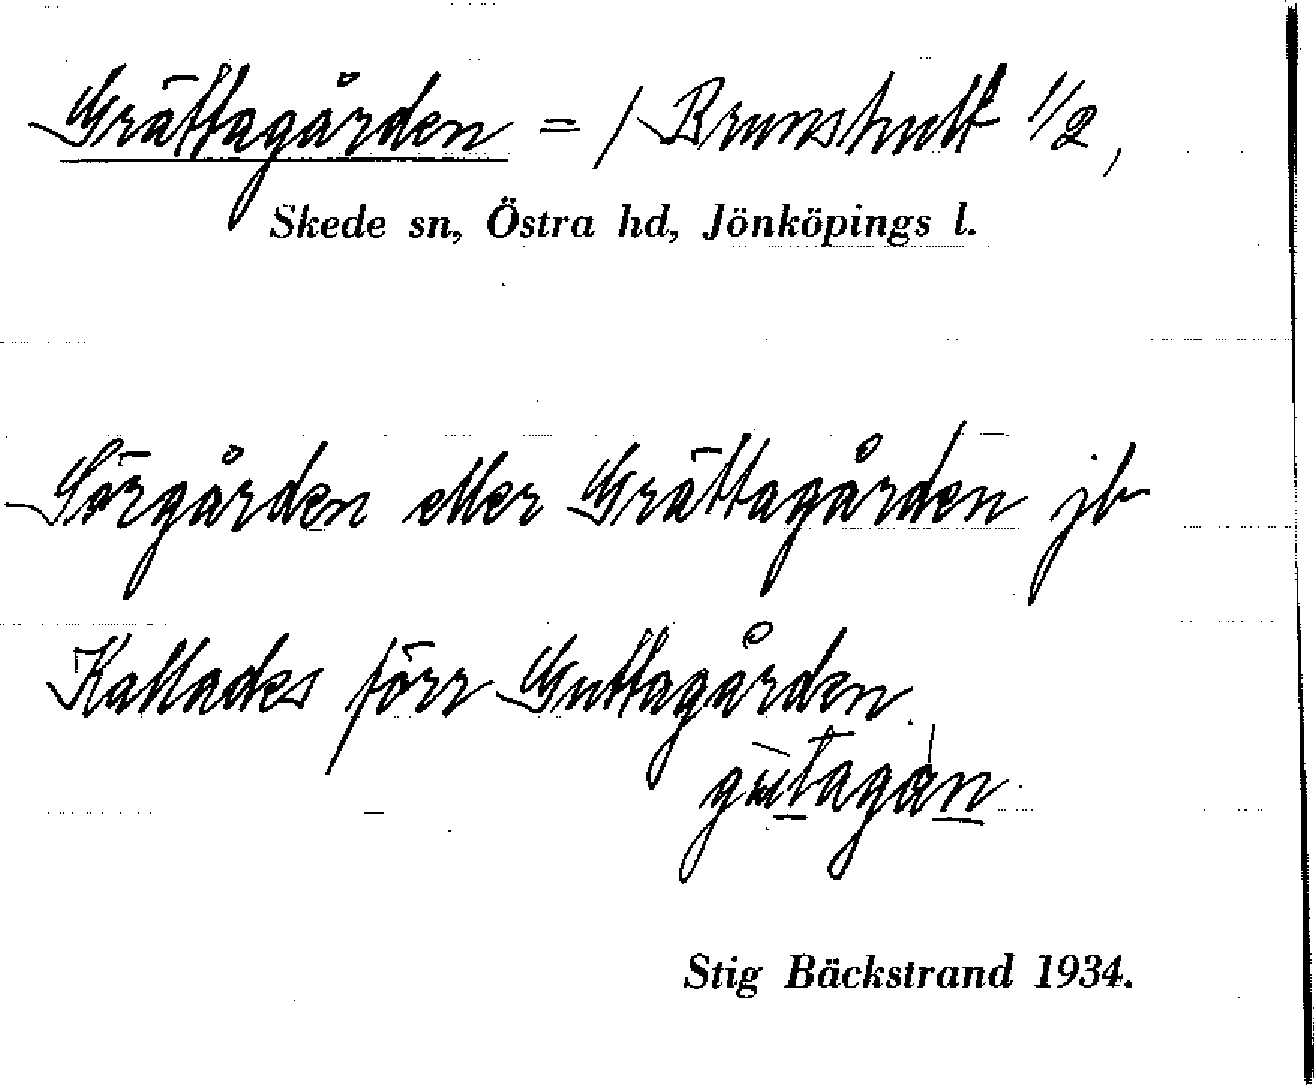 Grättagården = / Brunshult 1/2,
Skede sn, Östra hd, Jönköpings l.
Sörgården eller Grättagården jb
Kallades förr Guttagården.
gutagån
Stig Bäckstrand 1934.